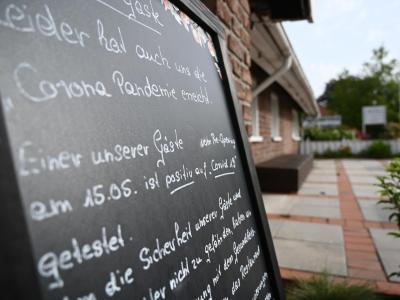 Gäste
Leider hat auch uns die
„Corona Pandemie erreicht.
Einer unserer Gäste vom Re-Opening
am 15.05. ist positiv auf „Covid 19"
getestet.
Um die Sicherheit unserer Gäste und
nicht zu gefährden, haben wir
mit dem Gesundheits-
das Restaurant